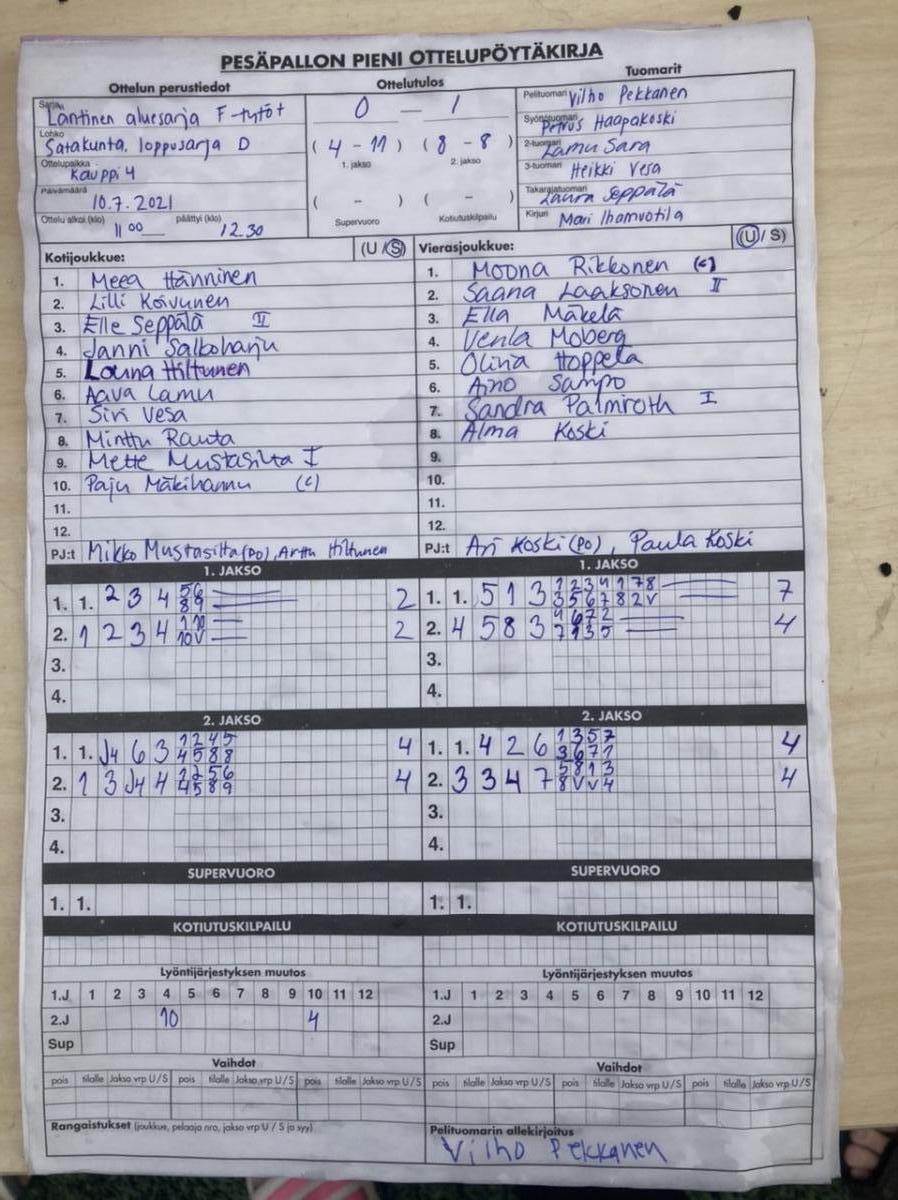 PESÄPALLON PIENI OTTELUPÖYTÄKIRJA
Ottelun perustiedot
Sarja Läntinen aluesarja F-tytöt
Lohko Satakunta, loppusarja D
Ottelupaikka Kauppi 4
Päivämäärä 10.7.2021
Ottelu alkoi (klo) 11 00 päättyi (klo) 12.30
Ottelutulos
0 — 1
( 4 - 11 ) ( 8 - 8 )
1. jakso 2. jakso
( - ) ( - )
Supervuoro Kotiutuskilpailu
Tuomarit
Pelituomari Vilho Pekkanen
Syöttötuomari Petrus Haapakoski
2-tuomari Lamu Sara
3-tuomari Heikki Vesa
Takarajatuomari Laura Seppälä
Kirjuri Mari Ihamvotila
Kotijoukkue: (U / S)
1. Meea Hänninen
2. Lilli Koivunen
3. Elle Seppälä II
4. Janni Salboharju
5. Louna Hiltunen
6. Aava Lamu
7. Siri Vesa
8. Minttu Ranta
9. Mette Mustasilta I
10. Paju Mäkihannu (c)
11.
12.
PJ:t Mikko Mustasilta (PO), Arttu Hiltunen
Vierasjoukkue: (U / S)
1. Moona Rikkonen (c)
2. Saana Laaksonen II
3. Ella Mäkelä
4. Venla Moberg
5. Olina Hoppela
6. Aino Sampo
7. Sandra Palmroth I
8. Alma Koski
9.
10.
11.
12.
PJ:t Ari Koski (PO), Paula Koski
1. JAKSO
1. 1. 2 3 4 56 2
89
2. 1 2 3 4 1 10 2
10 V
3.
4.
1. JAKSO
1. 1. 5 1 3 1 2 3 4 1 7 8 7
3 5 6 7 8 2 V
2. 4 5 8 3 4 6 7 2 4
7 1 3 5
3.
4.
2. JAKSO
1. 1. J4 6 3 1 2 4 5 4
4 5 8 8
2. 1 3 J4 4 1 2 5 6 4
4 5 8 9
3.
4.
2. JAKSO
1. 1. 4 2 6 1 3 5 7 4
3 6 7 1
2. 3 3 4 7 5 8 1 3 4
8 V V 4
3.
4.
SUPERVUORO
1. 1.
SUPERVUORO
1. 1.
KOTIUTUSKILPAILU
KOTIUTUSKILPAILU
Lyöntijärjestyksen muutos
1.J 1 2 3 4 5 6 7 8 9 10 11 12
2.J 10 4
Sup
Lyöntijärjestyksen muutos
1.J 1 2 3 4 5 6 7 8 9 10 11 12
2.J
Sup
Vaihdot
pois tilalle Jakso vrp U/S pois tilalle Jakso vrp U/S pois tilalle Jakso vrp U/S
Vaihdot
pois tilalle Jakso vrp U/S pois tilalle Jakso vrp U/S pois tilalle Jakso vrp U/S
Rangaistukset (joukkue, pelaaja nro, jakso vrp U / S ja syy)
Pelituomarin allekirjoitus
Vilho Pekkanen